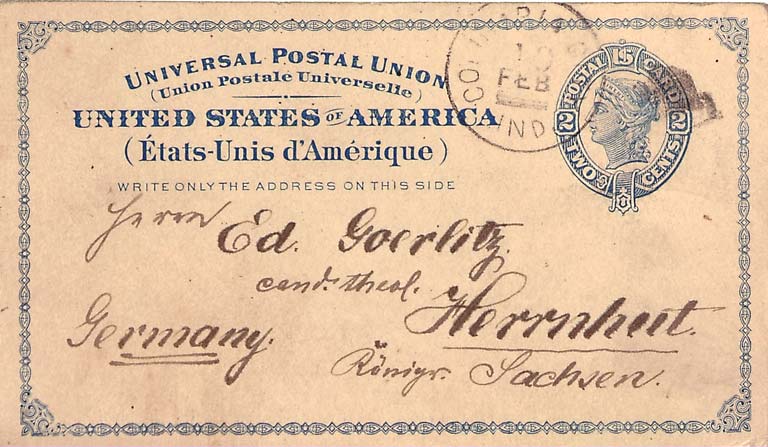 UNIVERSAL POSTAL UNION
(Union Postale Universelle)
UNITED STATES OF AMERICA
(États-Unis d'Amérique)
WRITE ONLY THE ADDRESS ON THIS SIDE
10
FEB
IND
POSTAL CARD
U S
2 2
TWO CENTS
Herrn
Ed. Goerlitz.
cand. theol.
Herrnhut.
Germany.
Königr. Sachsen.